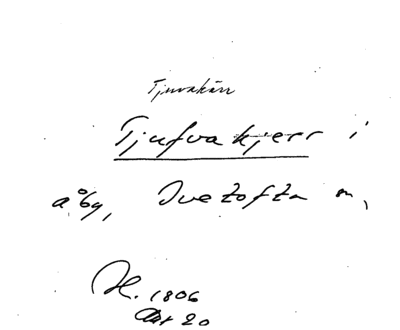 Tjuvakärr
Tjufvakjerr i
Åby, Ivetofta sn,
H. 1806
Akt 20